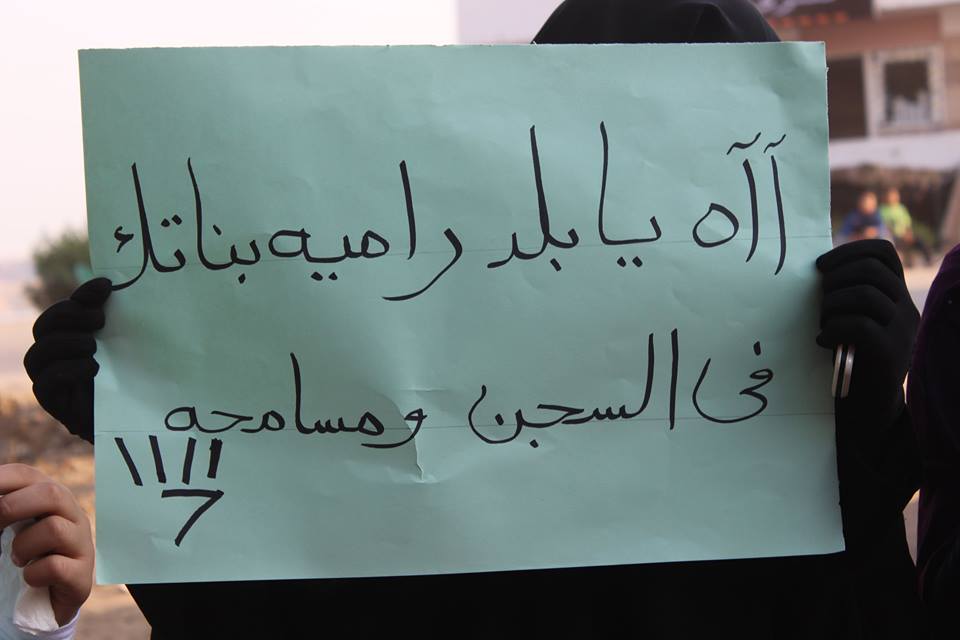 آآه يا بلد راميه بناتك
فى السجن ومسامحه